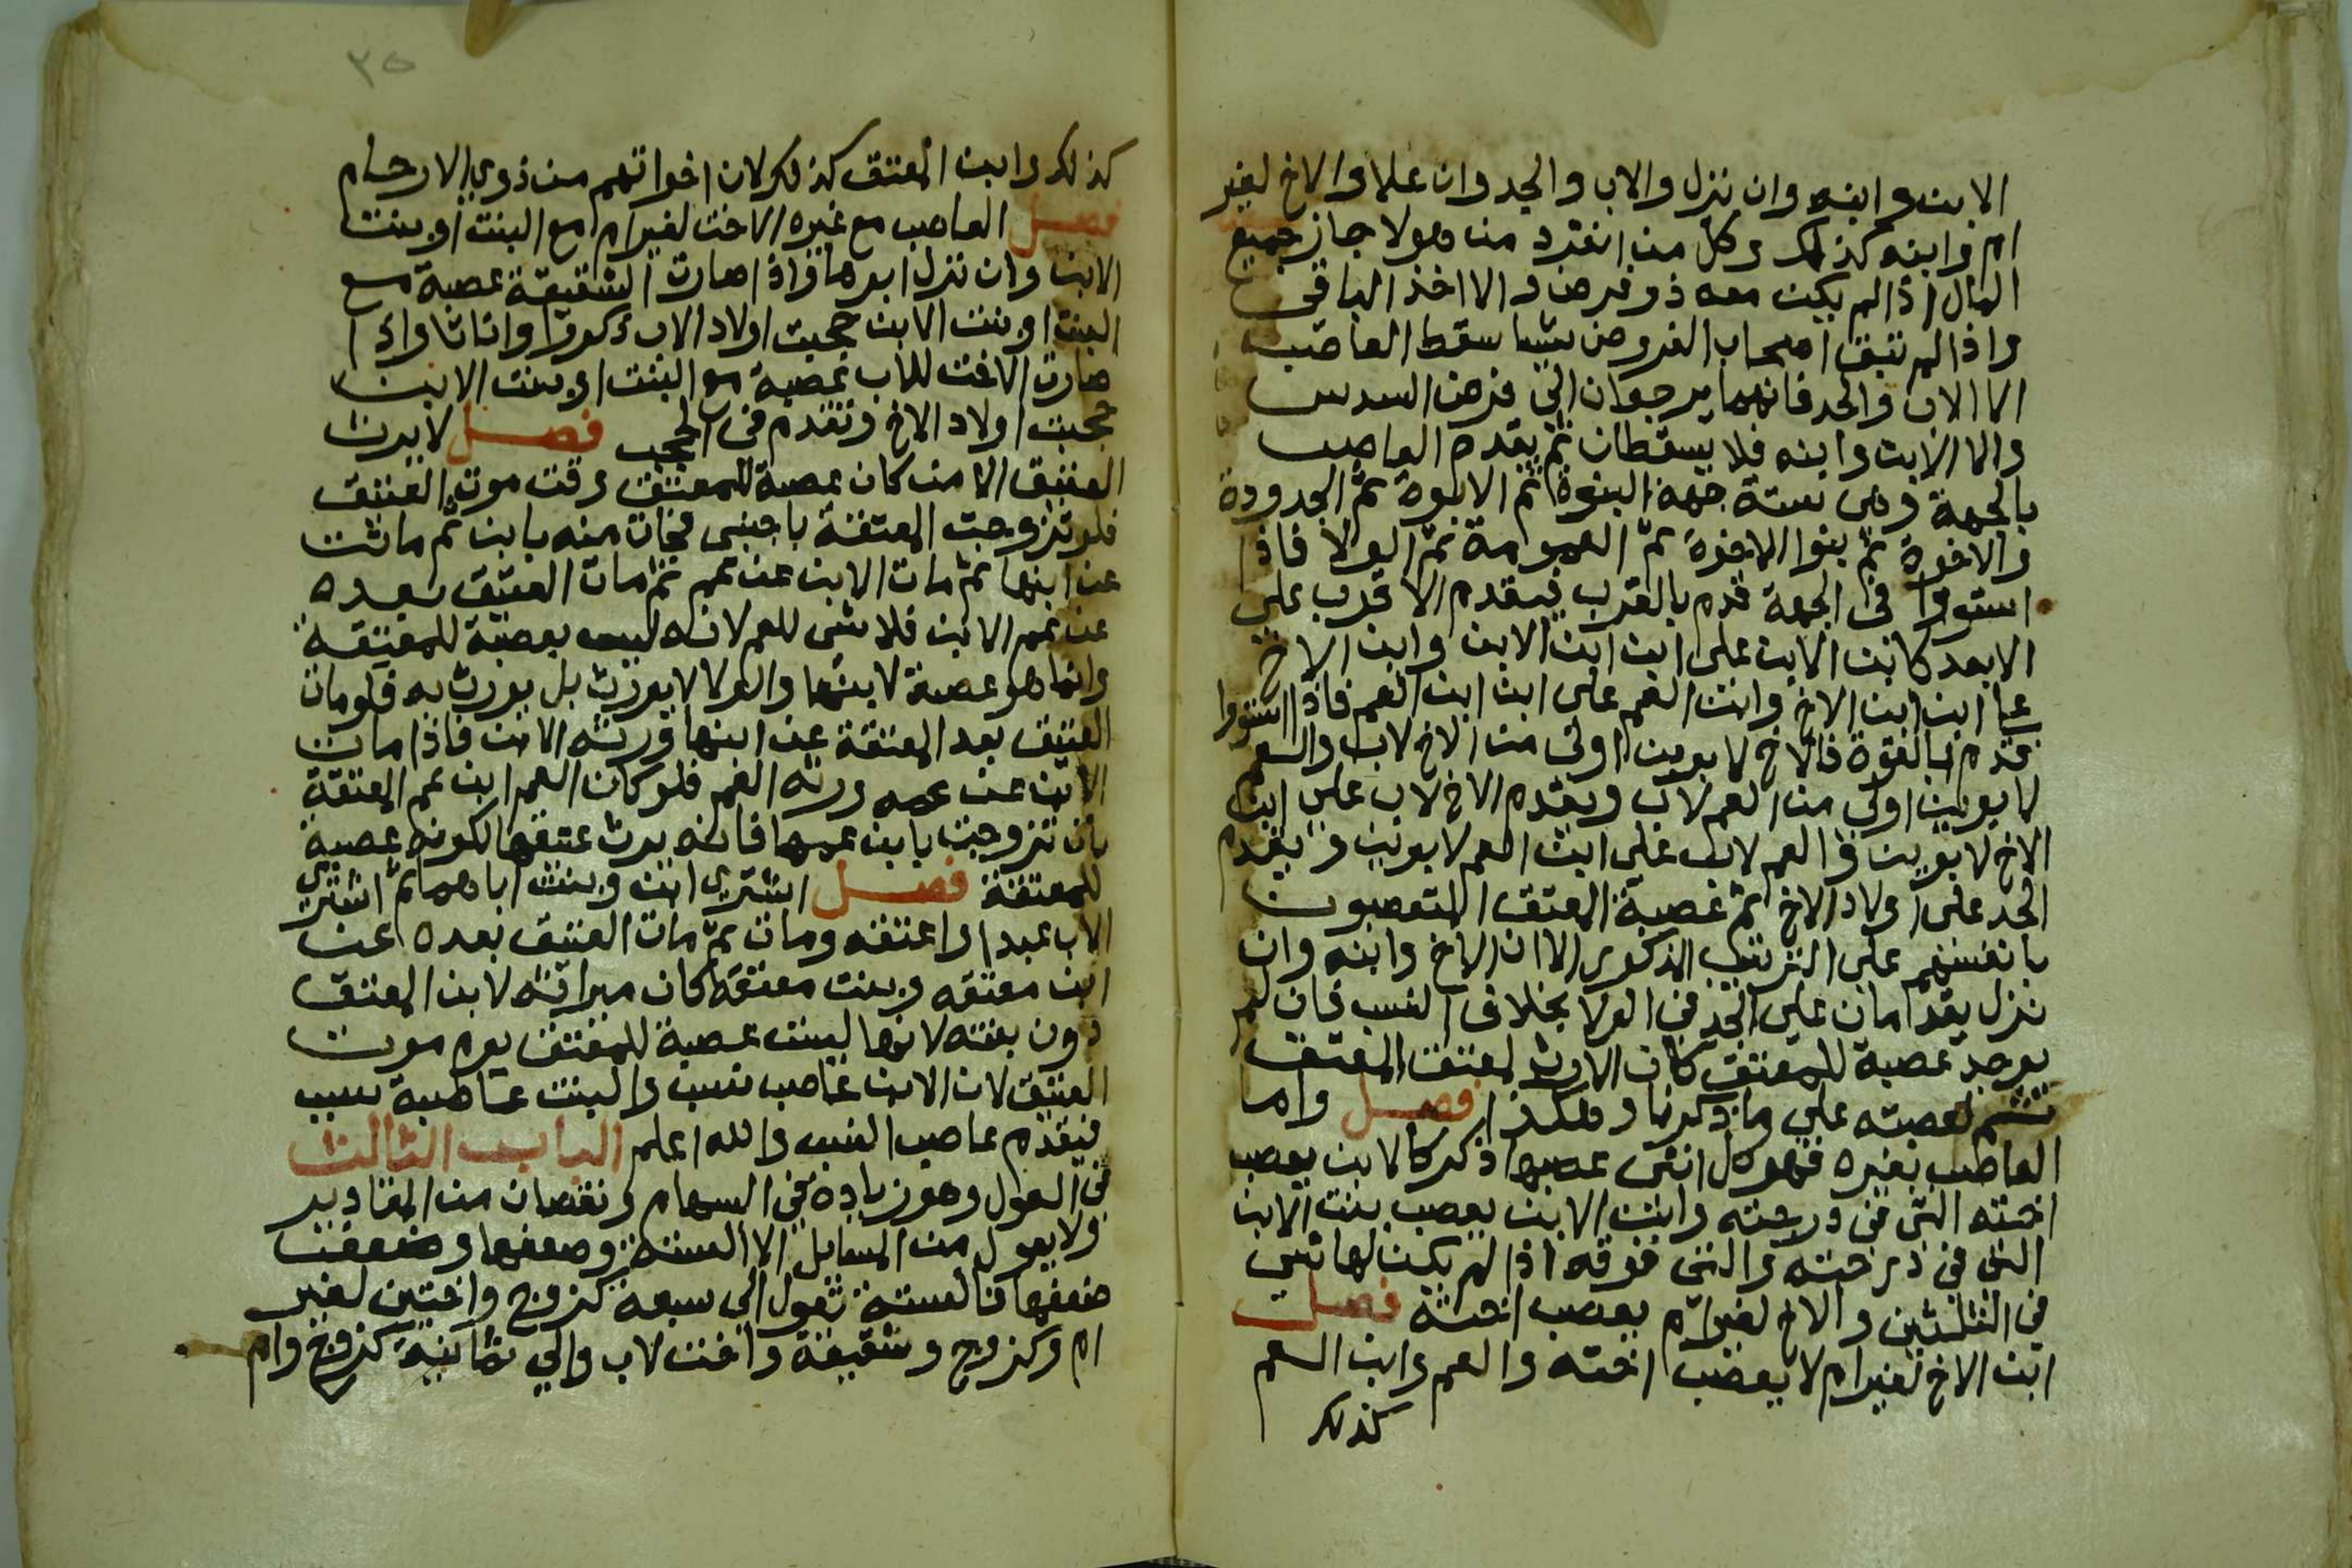 الابن وابنه وان نزل والاب والجد وان علا والاخ لغير
ام وابنه كذلك وكل من انفرد من هولا حاز جميع
المال اذا لم يكن معه ذو فرض والا اخذ الباقى
واذا لم تبق اصحاب الفروض شيا سقط العاصب
الا الاب والجد فانهما يرجعان الى فرض السدس
والا الابن وابنه فلا يسقطان ثم يقدم العاصب
بالجهة وهى ستة جهة البنوة ثم الابوة ثم الجدودة
والاخوة ثم بنوا الاخوة ثم العمومة ثم الولا فاذا
استووا فى الجهة قدم بالقرب فيقدم الاقرب على
الابعد كابن الابن على ابن ابن الابن وابن الاخ
على ابن ابن الاخ وابن العم على ابن ابن العم فاذا استووا
قدم بالقوة فالاخ لابوين اولى من الاخ لاب والعم
لابوين اولى من العم لاب ويقدم الاخ لاب على ابن
الاخ لابوين والعم لاب على ابن العم لابوين ويقدم
الجد على اولاد الاخ ثم عصبة المعتق المتعصبون
بانفسهم على الترتيب المذكور الا ان الاخ وابنه وان
نزل يقدمان على الجد فى الولا بخلاف النسب فان لم
يوجد عصبة للمعتق كان الارث لمعتق المعتق
ثم لعصبته على ما ذكرنا وهكذا فصل واما
العاصب بغيره فهو كل انثى عصبها ذكر كالابن يعصب
اخته التى فى درجته وابن الابن يعصب بنت الابن
التى فى درجته والتى فوقه اذا لم يكن لها شي
فى الثلثين والاخ لغير ام يعصب اخته فصل
ابن الاخ لغير ام لا يعصب اخته والعم وابن العم
كذلك
٣٥
كذلك وابن المعتق كذلك لان اخواتهم من ذوي الارحام
فصل العاصب مع غيره الاخت لغير ام مع البنت او بنت
الابن وان نزل ابوها واذا صارت الشقيقة عصبة مع
البنت او بنت الابن حجبت اولاد الاب ذكورا واناثا واذا
صارت الاخت للاب عصبة مع البنت او بنت الابن
حجبت اولاد الاخ وتقدم فى الحجب فصل لا يرث
العتيق الا من كان عصبة للمعتق وقت موت العتيق
فلو تزوجت المعتقة باجنبى فجات منه بابن ثم ماتت
عن ابنها ثم مات الابن عن عم ثم مات العتيق بعده
عن عم الابن فلا شى للعم لانه ليس بعصبة للمعتقة
وانما هو عصبة لابنها والولا لا يورث بل يورث به فلو مات
العتيق بعد المعتقة عن ابنها ورثه الابن فاذا مات
الابن عن عمه ورثه العم فلو كان العم ابن عم المعتقة
بان تزوجت بابن عمها فانه يرث عتيقها لكونه عصبة
للمعتقة فصل اشترى ابن وبنت اباهما ثم اشترى
الاب عبدا واعتقه ومات ثم مات العتيق بعده عن
ابن معتقه وبنت معتقه كان ميراثه لابن المعتق
دون بنته لانها ليست عصبة للمعتق يوم موت
العتيق لان الابن عاصب نسب والبنت عاصبة سبب
فيقدم عاصب النسب والله اعلم الباب الثالث
فى العول وهو زيادة فى السهام ونقصان من المقادير
ولا يعول من المسايل الا الستة وضعفها وضعف
ضعفها فالستة تعول الى سبعة كزوج واختين لغير
ام وكزوج وشقيقة واخت لاب والي ثمانية كزوج وام